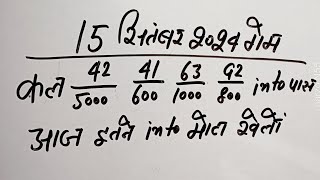 15 सितंबर २०२४ गेम
कल 42/5000 41/600 63/1000 92/800 into पास
आज इतने into मोल खेलों